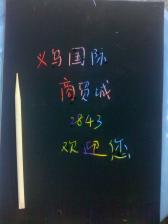 义乌国际
商贸城
2843
欢迎您